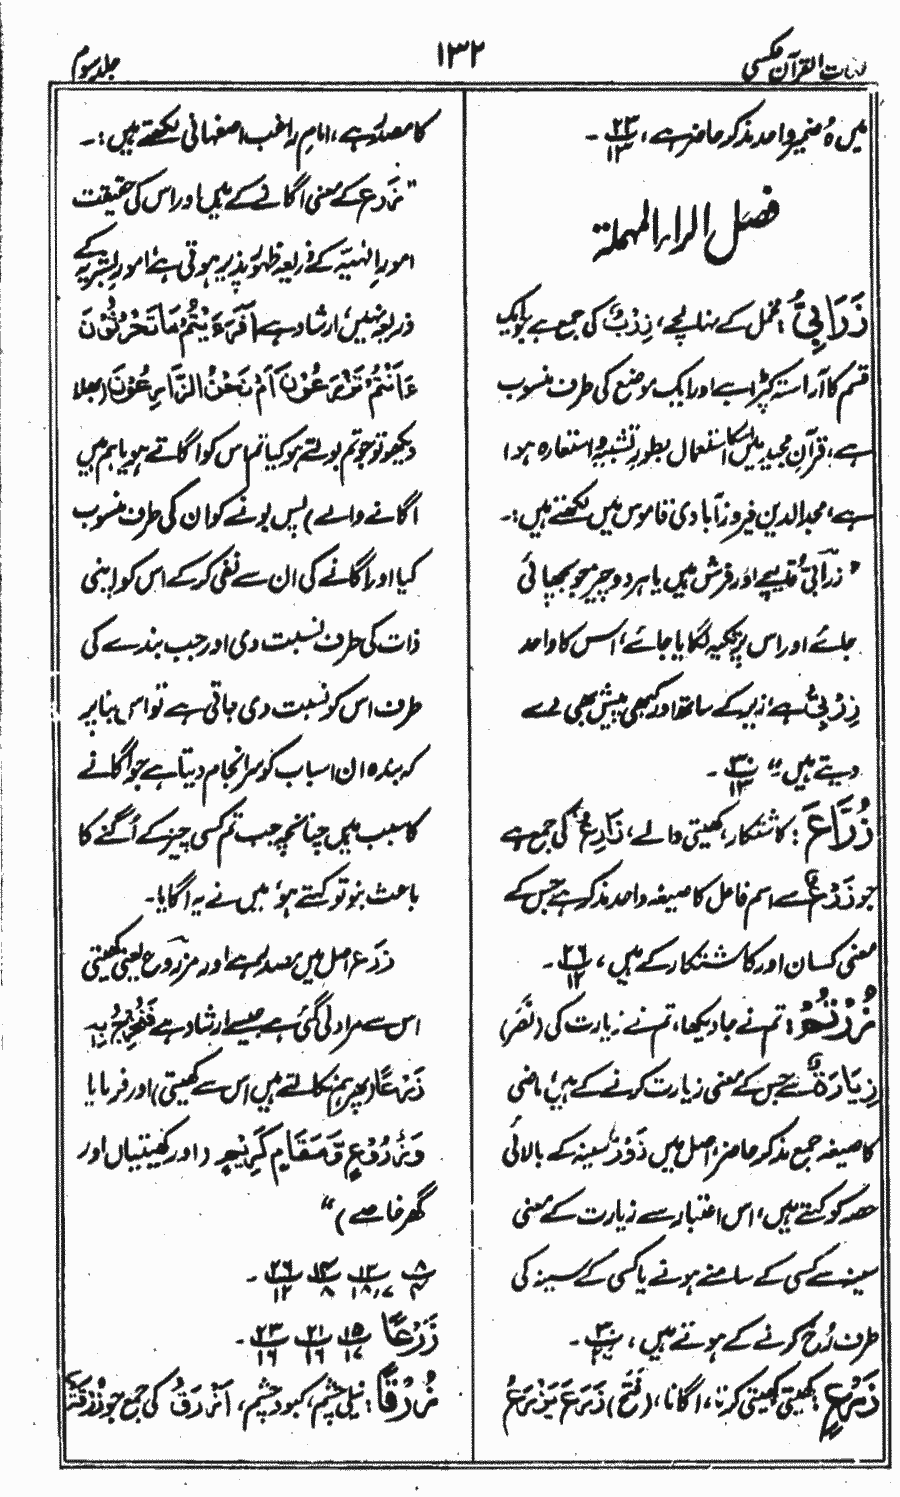 لغات القرآن عکسی
۱۳۲
جلد سوم
میں ہُ ضمیر واحد مذکر حاضر ہے، ۲۳/۱۳ -
فصل الراء المہملۃ
زَرَابِیُّ: مخمل کے نہالچے، زِرْبِیٌّ کی جمع ہے جو ایک
قسم کا آراستہ کپڑا ہے اور ایک موضع کی طرف منسوب
ہے، قرآن مجید میں اسکا استعمال بطور تشبیہ و استعارہ ہوا
ہے، مجد الدین فیروز آبادی قاموس میں لکھتے ہیں:-
"زرابی، قلیچے اور فرش ہیں یا ہر وہ چیز جو بچھائی
جائے اور اس پر تکیہ لگایا جائے، اس کا واحد
زِرْبِیٌّ ہے، زیر کے ساتھ اور کبھی پیش بھی دے
دیتے ہیں" ۳۰/۱۳ -
زُرَّاعَ: کاشتکار، کھیتی والے، زَارِعٌ کی جمع ہے
جو زَرْعٌ سے اسم فاعل کا صیغہ واحد مذکر ہے جس کے
معنی کسان اور کاشتکار کے ہیں، ۲۶/۱۲ -
زُرْتُمُ: تم نے جا دیکھا، تم نے زیارت کی (نَصَرَ)
زِیَارَۃٌ سے جس کے معنی زیارت کرنے کے ہیں، ماضی
کا صیغہ جمع مذکر حاضر، اصل میں زَوْرٌ سینہ کے بالائی
حصہ کو کہتے ہیں، اس اعتبار سے زیارت کے معنی
سینہ سے کسی کے سامنے ہونے یا کسی کے سینہ کی
طرف رُخ کرنے کے ہوتے ہیں، ۳۰ -
زَرْعٍ: کھیتی، کھیتی کرنا، اگانا، (فَتَحَ) زَرَعَ یَزْرَعُ
کا مصدر ہے، امام راغب اصفہانی لکھتے ہیں:-
"زَرْع کے معنی اگانے کے ہیں اور اس کی حقیقت
امورِ الٰہیہ کے ذریعہ ظہور پذیر ہوتی ہے، امورِ بشریہ کے
ذریعہ نہیں، ارشاد ہے اَفَرَءَیْتُمْ مَا تَحْرُثُوْنَ
ءَاَنْتُمْ تَزْرَعُوْنَہٗ اَمْ نَحْنُ الزَّارِعُوْنَ (بھلا
دیکھو تو جو تم بوتے ہو کیا تم اس کو اگاتے ہو یا ہم ہیں
اگانے والے) پس بونے کو ان کی طرف منسوب
کیا اور اگانے کی ان سے نفی کرکے اس کو اپنی
ذات کی طرف نسبت دی اور جب بندے کی
طرف اس کو نسبت دی جاتی ہے تو اس بنا پر
کہ بندہ ان اسباب کو سرانجام دیتا ہے جو اگانے
کا سبب ہیں چنانچہ جب تم کسی چیز کے اُگنے کا
باعث بنو تو کہتے ہو، میں نے یہ اگایا۔
زَرْع اصل میں مصدر ہے اور مزروع یعنی کھیتی
اس سے مراد لی گئی ہے جیسے ارشاد ہے فَنُخْرِجُ بِہٖ
زَرْعًا (پھر ہم نکالتے ہیں اس سے کھیتی) اور فرمایا
وَزُرُوْعٍ وَّمَقَامٍ کَرِیْمٍ (اور کھیتیاں اور
گھر خاصے)"
۸/۴ ۱۳/۱۸،۷ ۱۳/۸ ۲۶/۱۲ -
زَرْعًا ۱۵/۱۷ ۲۱/۱۶ ۲۳/۱۶ -
زُرْقًا: نیلی چشم، کبود چشم، اَزْرَقُ کی جمع جو زُرْقَۃٌ